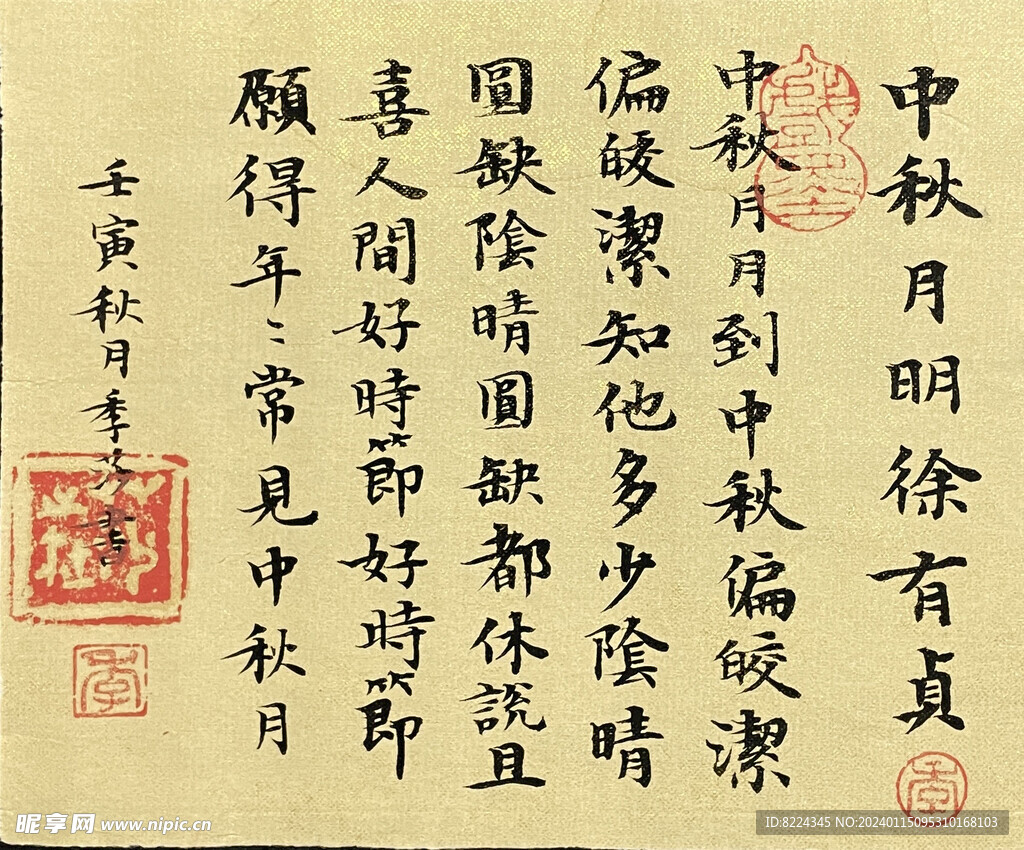 中秋月明徐有貞
中秋月月到中秋偏皎潔
偏皎潔知他多少陰晴
圓缺陰晴圓缺都休説且
喜人間好時節好時節
願得年〻常見中秋月
壬寅秋月季莎書
昵享网 www.nipic.cn
ID:8224345 NO:20240115095310168103